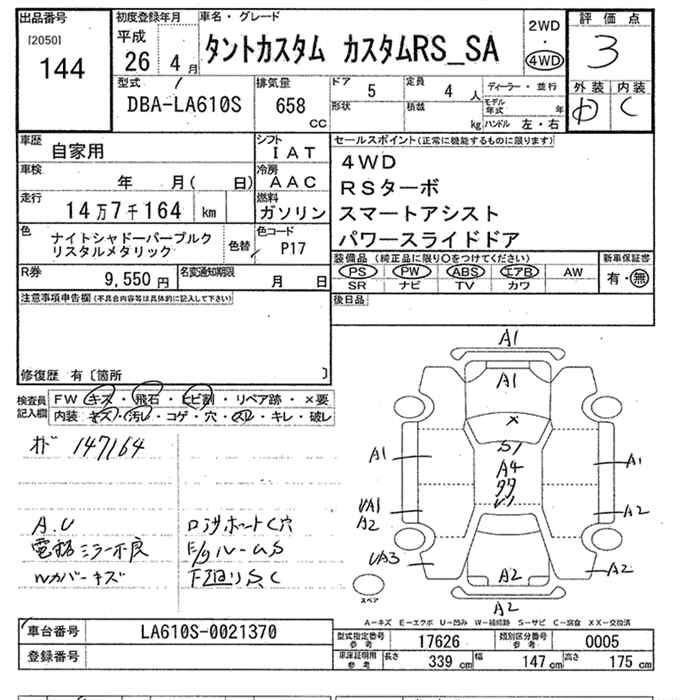 出品番号
[2050]
144
初度登録年月
平成
26 4月
車名・グレード
タントカスタム カスタムRS_SA
2WD
・
4WD
評価点
3
外装 内装
D C
型式
DBA-LA610S
排気量
658
CC
ドア 5
定員 4 人
形状
積載 kg
ディーラー・並行
モデル年式 年
ハンドル 左・右
車歴
自家用
シフト
IAT
車検
年 月( 日)
冷房
AAC
走行
14万7千164 km
燃料
ガソリン
色
ナイトシャドーパープルク
リスタルメタリック
色替
色コード
P17
R券
9,550円
名変通知期限
月 日
セールスポイント(正常に機能するものに限ります)
4WD
RSターボ
スマートアシスト
パワースライドドア
装備品(純正品に限り○をつけてください)
PS PW ABS エアB AW
SR ナビ TV カワ
新車保証書
有・無
後日品
注意事項申告欄(不具合内容等は具体的に記入して下さい)
修復歴 有〔箇所 〕
検査員記入欄
FW キズ・飛石・ヒビ割・リペア跡・×要
内装 キズ・汚レ・コゲ・穴・スレ・キレ・破レ
147164
A.U
電格ミラー不良
カバーキズ
ロッカポートC穴
F/gルームS
下廻りS,C
A1
A1
×
S1
A4
A1
A1
UA1
A2
A2
UA3
A2
A2
A2
スペア
A-キズ E-エクボ U-凹み W-補修跡 S-サビ C-腐食 XX-交換済
車台番号 LA610S-0021370
登録番号
型式指定番号参考 17626
類別区分番号参考 0005
車庫証明用参考 長さ 339cm 幅 147cm 高さ 175cm